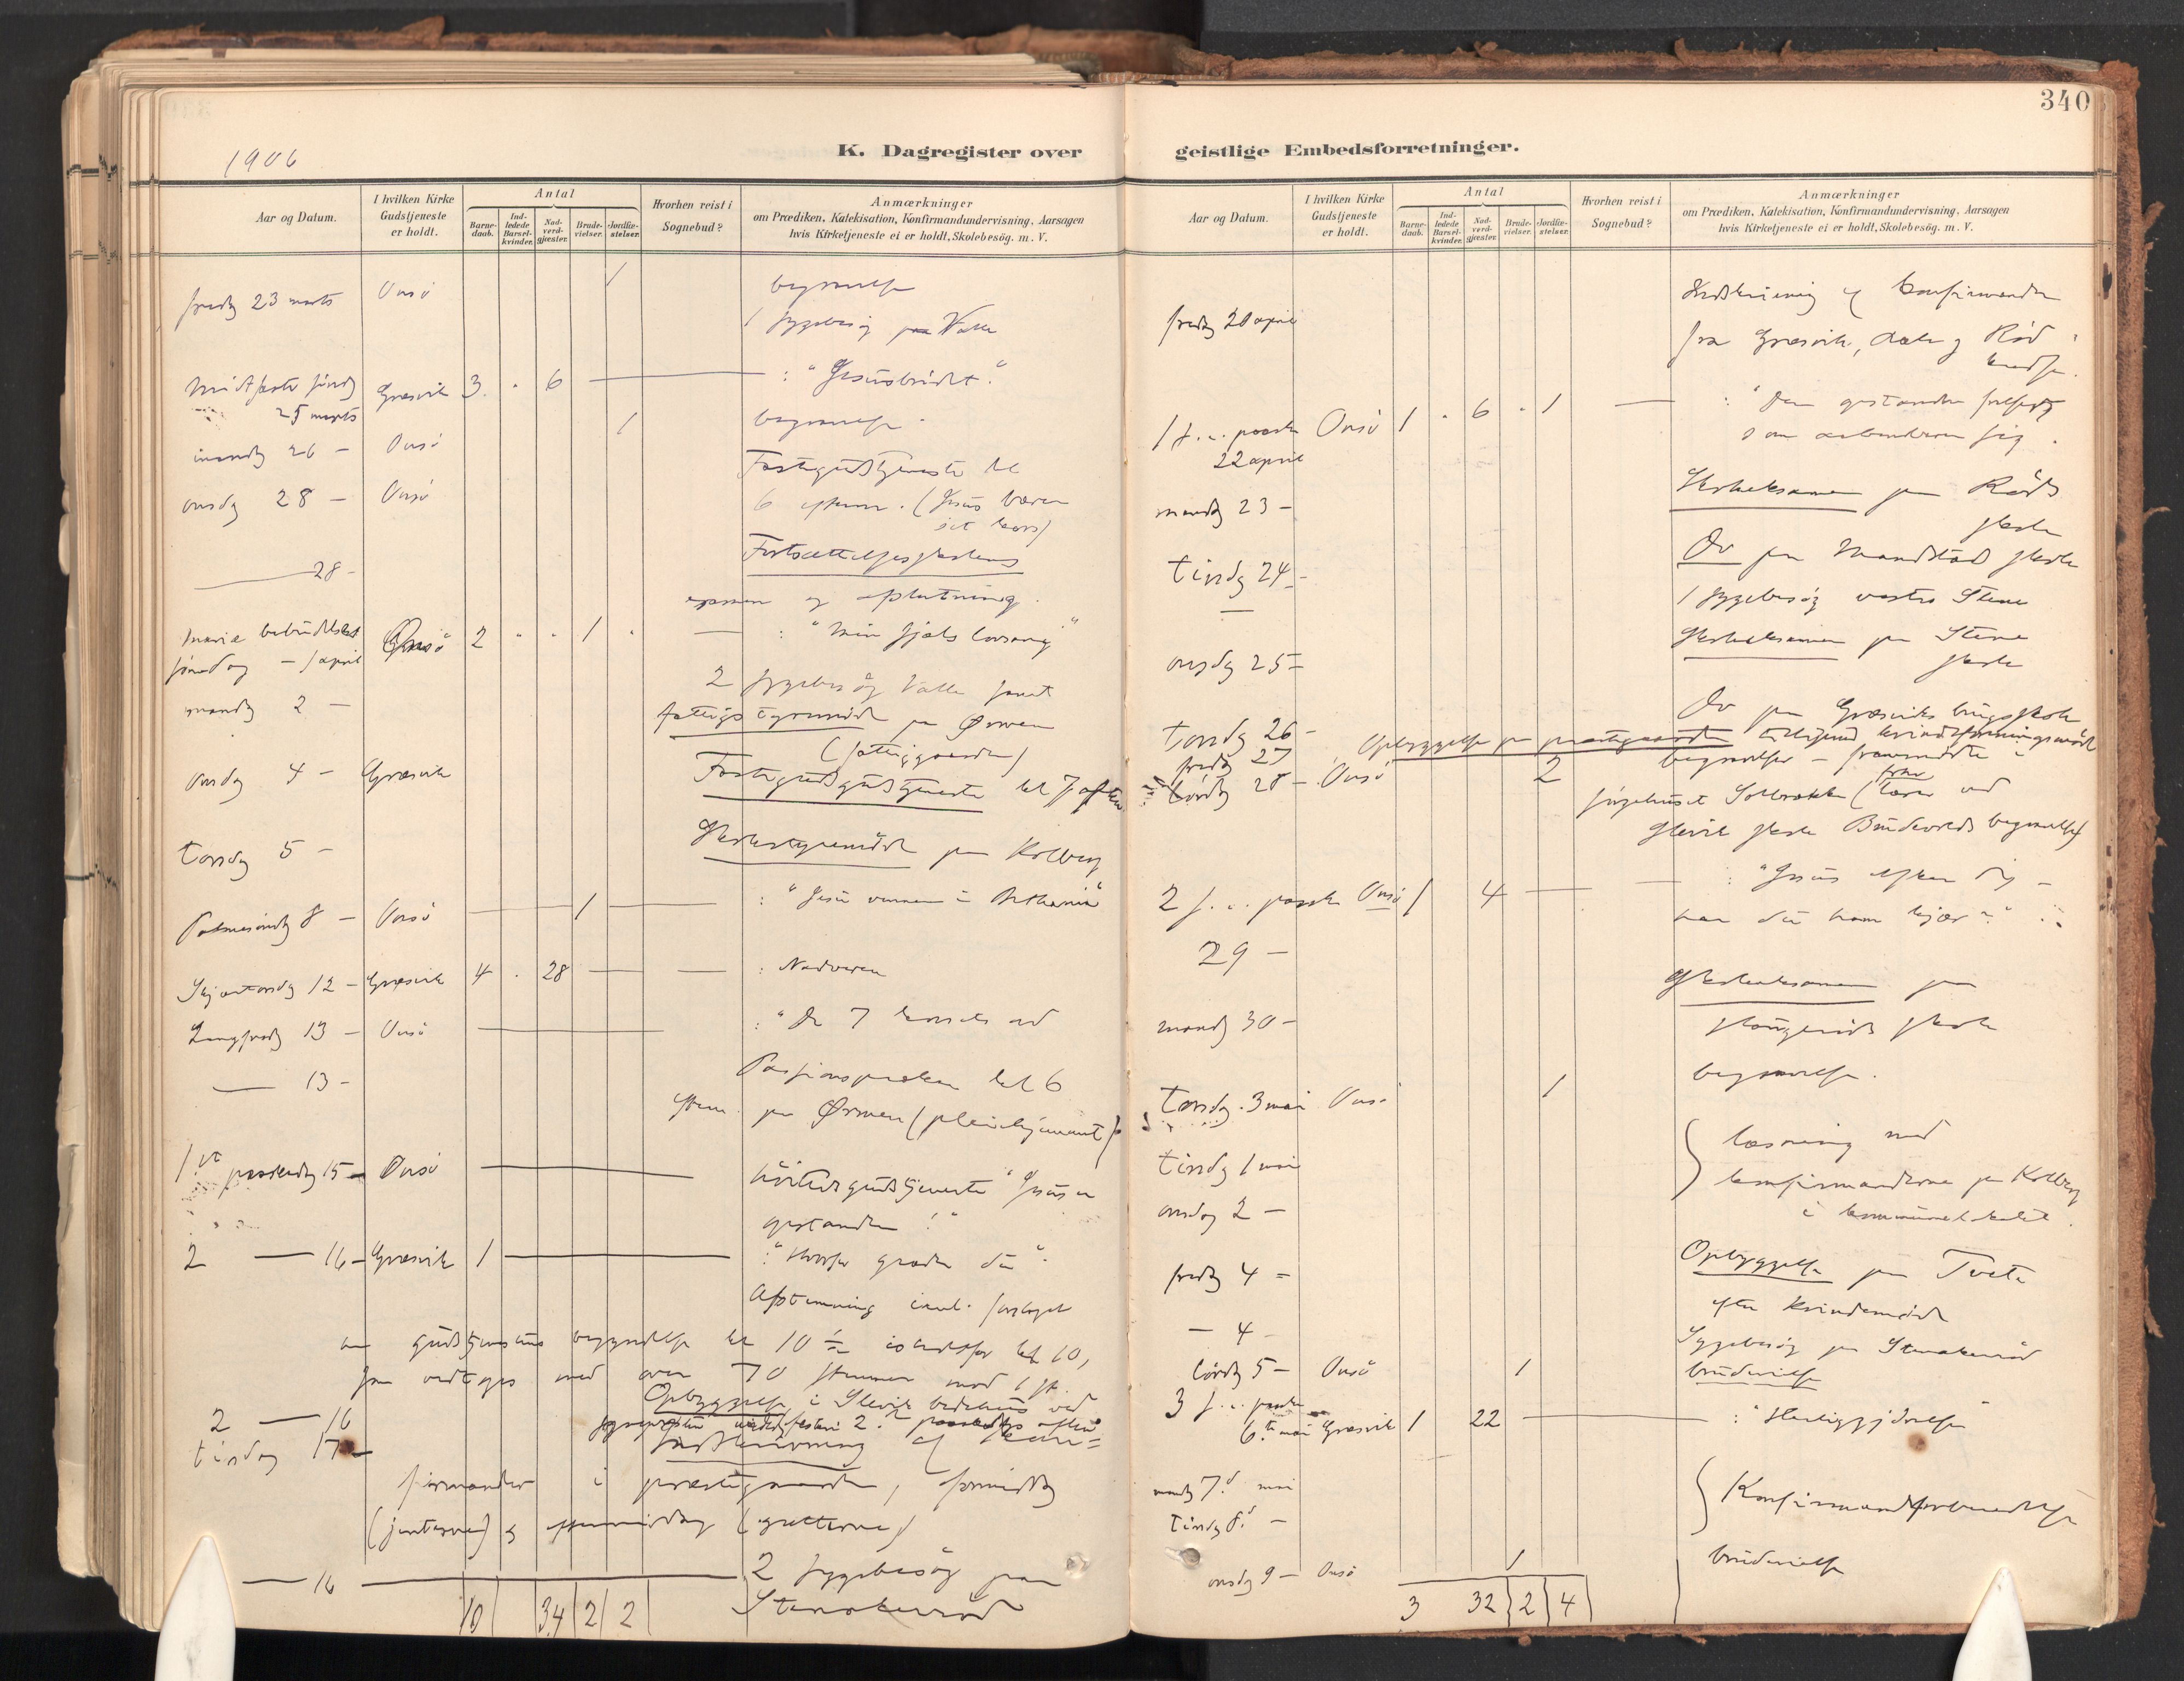 340
1906
K. Dagregister over geistlige Embedsforretninger.
Aar og Datum.
I hvilken Kirke Gudstjeneste er holdt.
Antal
Barne-daab.
Ind-ledede Barsel-kvinder.
Nad-verd-gjæster.
Brude-vielser.
Jordfæ-stelser.
Hvorhen reist i Sognebud?
Anmærkninger
om Prædiken, Katekisation, Konfirmandundervisning, Aarsagen
hvis Kirketjeneste ei er holdt, Skolebesög. m. V.
fredg 23 marts Onsö 1 begravelse
1 sygebesög paa Valle
Midtfaste söndg 25 marts Græsvik 3 " 6 : "Jesusbrödet."
mandg 26 — Onsö 1 begravelse
onsdg 28 — Onsö Fastegudstjeneste kl
6 efterm. (Jesus bærer
sit kors)
— 28 — Fortsættelsesskolens
exsamen og afslutning.
Marie bebudelsesd
söndag — 1 april Onsö 2 " " 1 " : "Min sjæls lovsang"
mandg 2 — 2 sygebesög Valle samt
fattigstyremöde paa Ørmen
(fattiggaarden)
onsdg 4 — Græsvik Fastegudstjeneste kl 7 aften
torsdg 5 — Skolestyremöde paa Kolberg
Palmesöndg 8 — Onsö 1 : "Jesu venner i Bethania"
Skjærtorsdg 12 — Græsvik 4 . 28 : Nadveren
Langfredg 13 — Onsö : "De 7 korsets ord
— 13 — Passionspræken kl 6
efterm. paa Ørmen (pleiehjemmet)
1ste paaskedg 15 — Onsö höitidsgudstjeneste "Jesus er
opstanden!"
2 — 16 — Græsvik 1 : "Hvorfor græder du".
Afstemning forslaget
om gudstjenestens begyndelse kl 10 ½ istedetfor kl 10,
som vedtoges med over 70 stemmer mod 1 st.
2 — 16 Opbyggelse i Slevik bedehus ved
2. paaskedags aften
tirsdag 17 — Indskrivning af kon=
firmander i præstegaarden, formiddg
(jenterne) og eftermiddag (gutterne)
— 16 2 sygebesög paa
Stenakerröd
10 34 2 2
K. Dagregister over geistlige Embedsforretninger.
Aar og Datum.
I hvilken Kirke Gudstjeneste er holdt.
Antal
Barne-daab.
Ind-ledede Barsel-kvinder.
Nad-verd-gjæster.
Brude-vielser.
Jordfæ-stelser.
Hvorhen reist i Sognebud?
Anmærkninger
om Prædiken, Katekisation, Konfirmandundervisning, Aarsagen
hvis Kirketjeneste ei er holdt, Skolebesög. m. V.
fredg 20 april Indskrivning af konfirmander
fra Græsvik, Dale og Röd
kreds.
1 s. e. paaske 22 april Onsö 1 " 6 " 1 : "Den opstandne frelser
som aabenbarer sig.
mandg 23 — Skoleeksamen paa Röds
skole
tirsdg 24 — Do paa Manstad skole
1 sygebesög vestre Stene
onsdg 25 — Skoleeksamen paa Stene
skole
torsdg 26 — Do paa Græsviks brugsskole
fredg 27 Opbyggelse paa præstegaarden tilligemed kvindeforeningsmöde
lördg 28 — Onsö 2 begravelser
2 s. e. paaske 29 — Onsö 1 4 : "Jesus elsker dig —
har du ham kjær?"
mandg 30 — Skoleeksamen paa
skole
torsdg. 3 mai Onsö 1 begravelse.
tirsdg 1 mai læsning med
onsdag 2 — konfirmanderne paa Kolberg
i kommunelokalet.
fredg 4 — Opbyggelse paa Tveta
efter kvindemöde
— 4 — Sygebesög paa Stenakerröd
lördg 5 — Onsö 1 brudevielse
3 s. e. paaske
6te mai Græsvik 1 22 : "Helliggjörelse"
mandg 7d mai Konfirmandforberedelse
tirsdg 8d —
onsdg 9 — Onsö 1 brudevielse
3 32 2 4